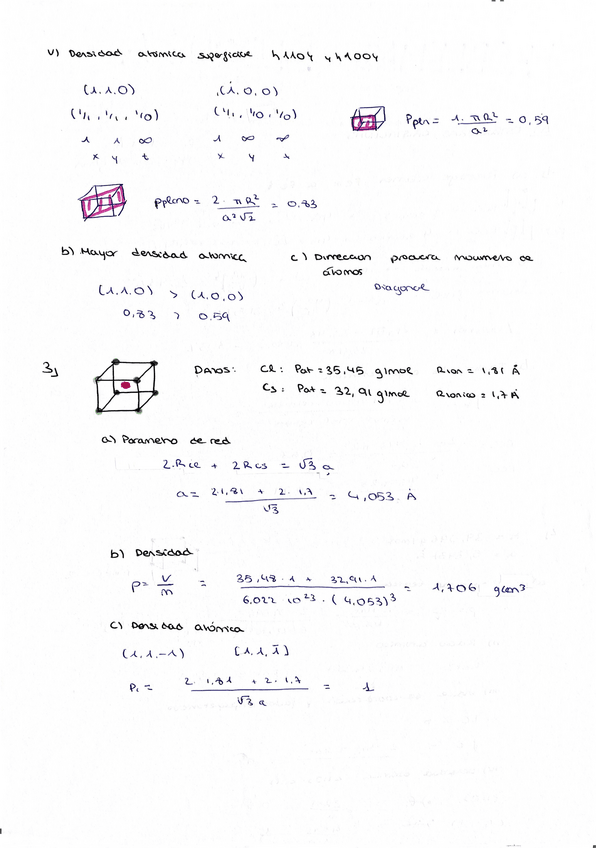 v) Densidad atómica superficie {110} y {100}
(1.1.0) (1.0,0)
(1/1, 1/1, 1/0) (1/1, 1/0, 1/0)
1 1 ∞ 1 ∞ ∞
x y z x y z
Pplan = 1. πR² / a² = 0,59
Pplano = 2. πR² / a²√2 = 0.83
b) Mayor densidad atomica
(1.1,0) > (1.0,0)
0,83 > 0.59
c) Dirrección
átomos
Diagonal
3) Datos: Cl: Pat = 35,45 g/mol Rion = 1,81 Å
Cs: Pat = 32,91 g/mol Rionico = 1,7 Å
a) Parametro de red
2.Rcl + 2Rcs = √3 a
a = 2.1,81 + 2. 1,7 / √3 = 4,053. Å
b) Densidad
ρ = V/m = 35,48.1 + 32,91.1 / 6.022 10²³.(4.053)³ = 1,706 g/cm³
c) Densidad atómica
(1.1.-1) [1.1,1̄]
P. = 2. 1,81 + 2. 1,7 / √3 a = 1